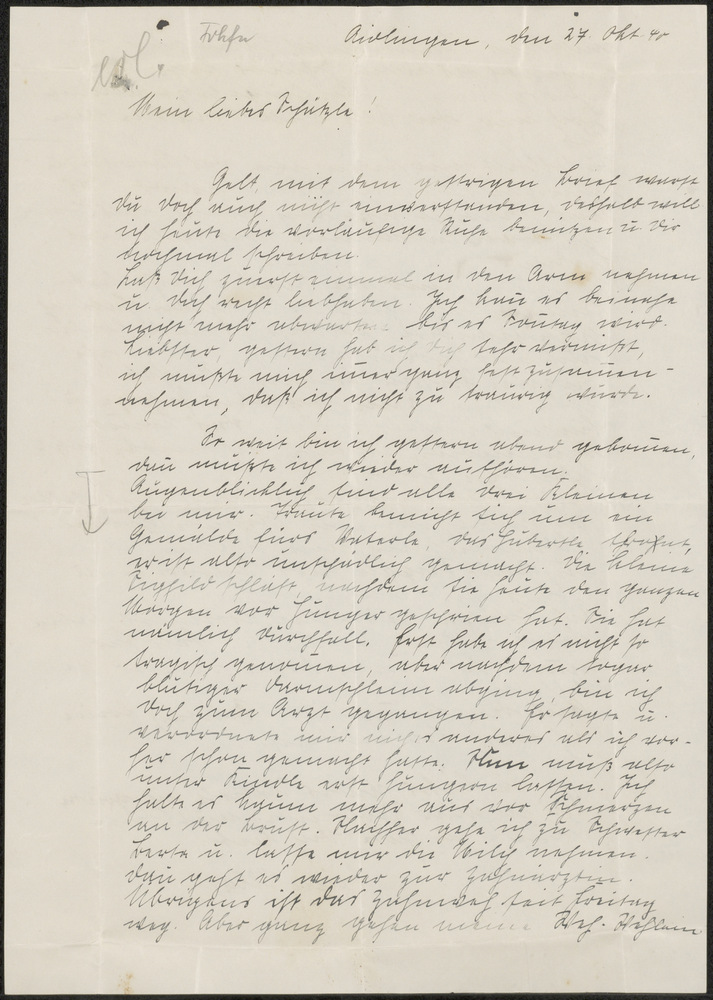 Aidlingen, den 27. Okt 40
Mein liebes Schätzle!
Gelt, mit dem gestrigen Brief warst
Du doch auch nicht einverstanden, deshalb will
ich heute die vorläufige Ruhe benützen u. Dir
nochmal schreiben.
Laß Dich zuerst einmal in den Arm nehmen
u. Dich recht liebhaben. Ich kann es beinahe
nicht mehr abwarten bis es Sonntag wird.
Liebster, gestern hab ich Dich sehr vermißt,
ich mußte mich immer ganz fest zusammen-
nehmen, daß ich nicht zu traurig wurde.
So weit bin ich gestern abend gekommen,
dann mußte ich wieder aufhören.
Augenblicklich sind alle drei Kleinen
bei mir. Traute bemüht sich um ein
Gemälde fürs Vaterle, das Huberle
er ist also unschädlich gemacht. Die kleine
Sighild schläft, nachdem sie heute den ganzen
Morgen vor Hunger geschrien hat. Sie hat
nämlich Durchfall. Erst habe ich es nicht so
tragisch genommen, aber nachdem sogar
blutiger Darmschleim abging, bin ich
doch zum Arzt gegangen. Er sagte u.
verordnete mir nichts anderes als ich vor-
her schon gemacht hatte. Nun muß also
unser Kindle erst hungern lassen. Ich
halte es kaum mehr aus vor Schmerzen
an der Brust. Nachher gehe ich zu Schwester
Berta u. lasse mir die Milch nehmen.
Dann geht es wieder zur Zahnärztin.
Übrigens ist das Zahnweh seit Freitag
weg. Aber ganz gehen meine Weh-Wehlein